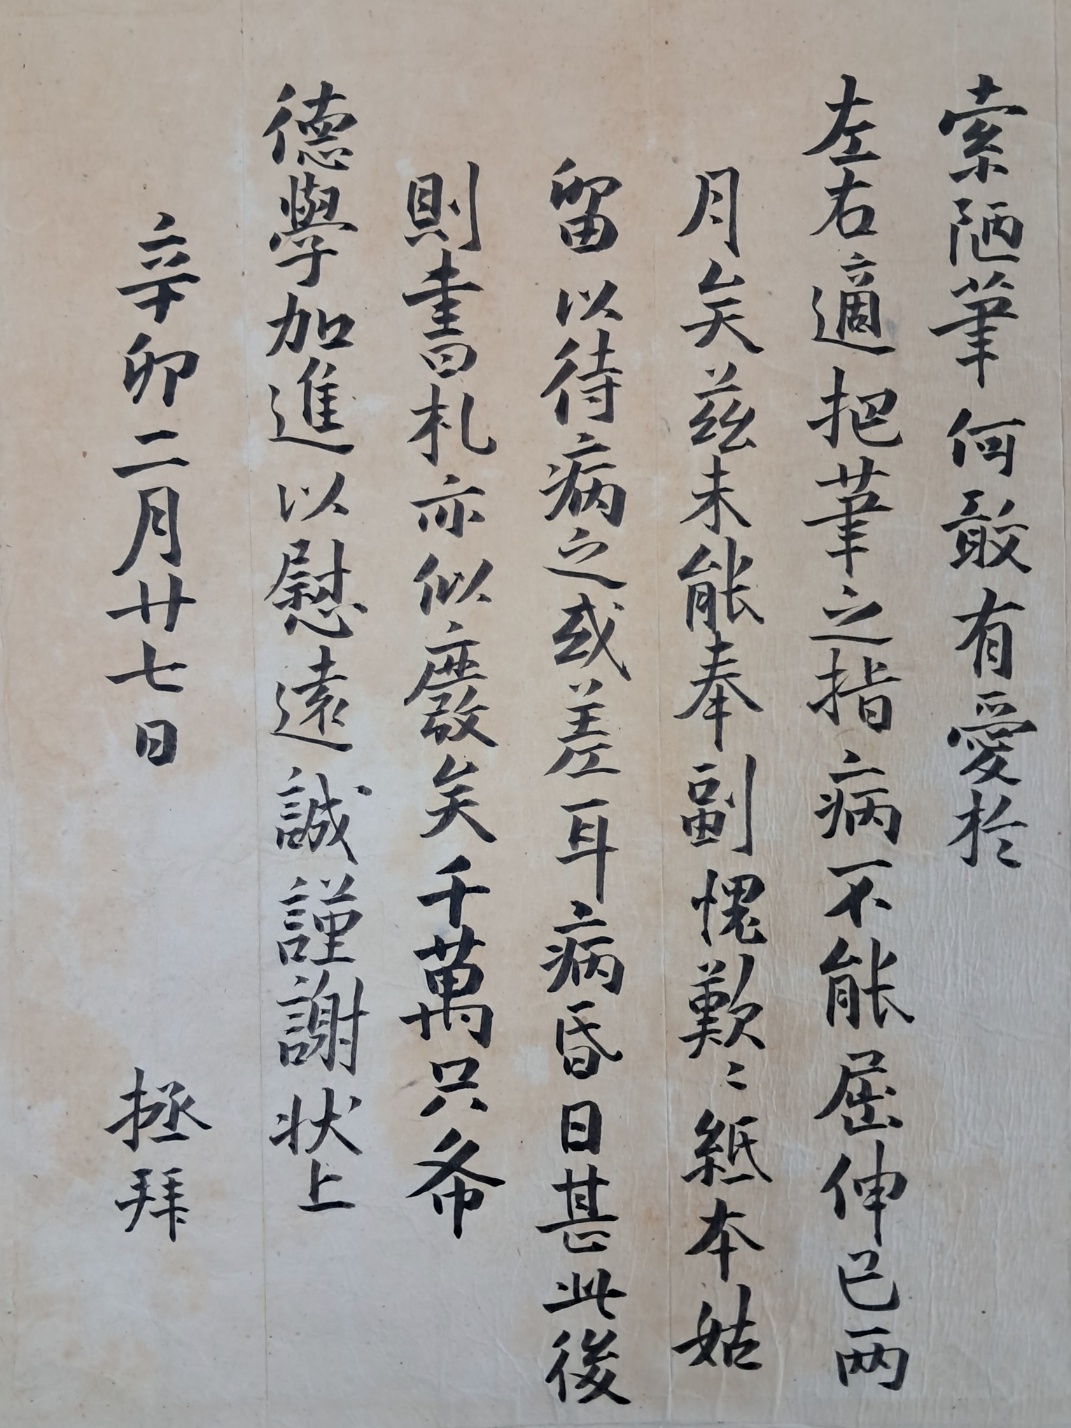 索陋筆何敢有愛於
左右適把筆之指病不能屈伸已两
月矣茲未能奉副愧歎〻紙本姑
留以待病之或差耳病昏日甚此後
則書札亦似廢矣千萬只希
德學加進以慰遠誠謹謝狀上
辛卯二月廿七日 拯拜